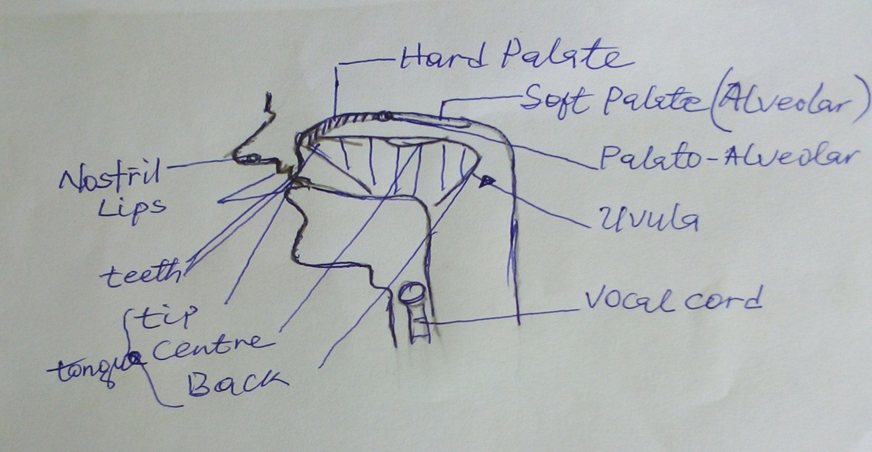 Hard Palate
Soft Palate (Alveolar)
Palato-Alveolar
Nostril
Lips
Uvula
teeth
Vocal cord
tip
tongue Centre
Back